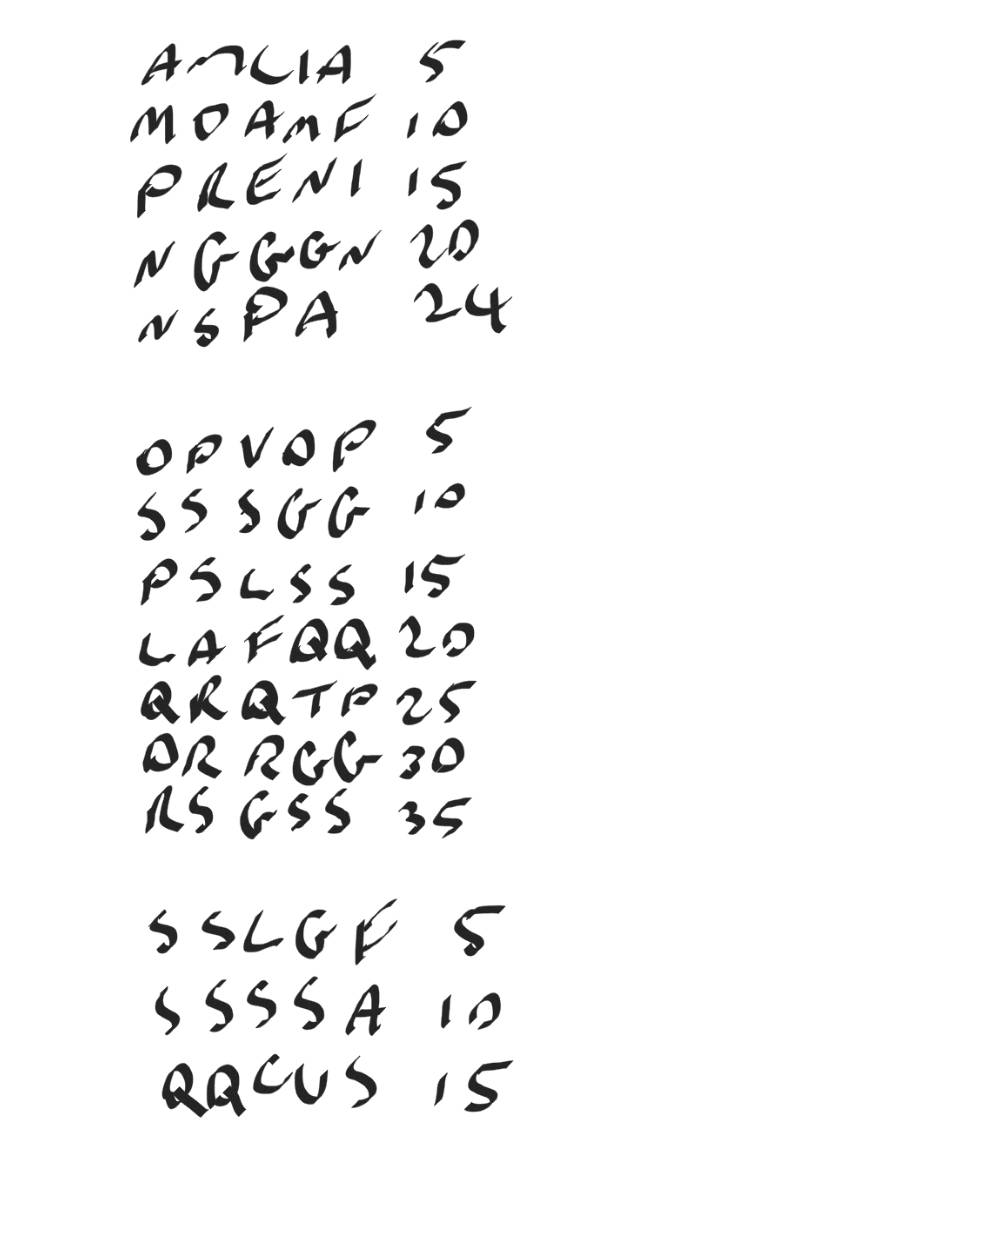 AMLIA 5
MOAMF 10
PRENI 15
NGGGN 20
NSPA 24
OPVOP 5
SSSGG 10
PSLSS 15
LAFQQ 20
QRQTP 25
DRRGG 30
RSGSS 35
SSLGF 5
SSSSA 10
QQCUS 15